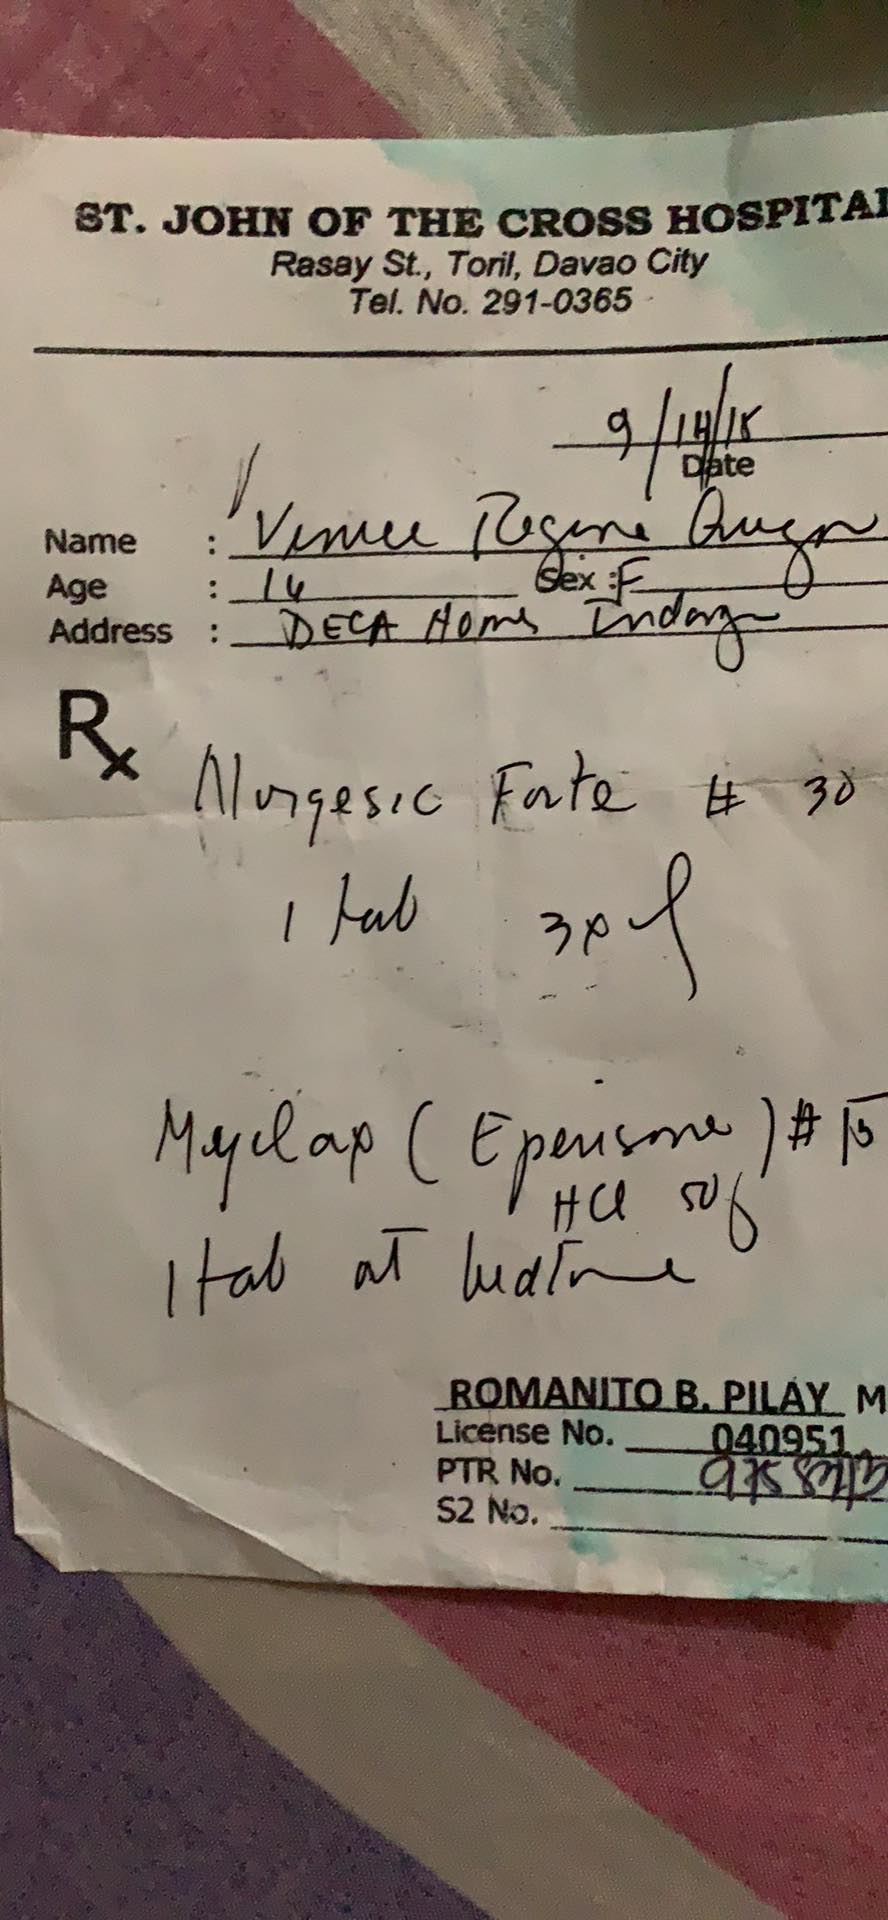 ST. JOHN OF THE CROSS HOSPITAL
Rasay St., Toril, Davao City
Tel. No. 291-0365
9/14/18
Date
Name : Regine
Age : 16 Sex : F
Address : DECA Homes
Rx
Norgesic Forte # 30
1 tab 3x
(Eperisone) # 15
HCl 50
1 tab at bedtime
ROMANITO B. PILAY M
License No. 040951
PTR No.
S2 No.